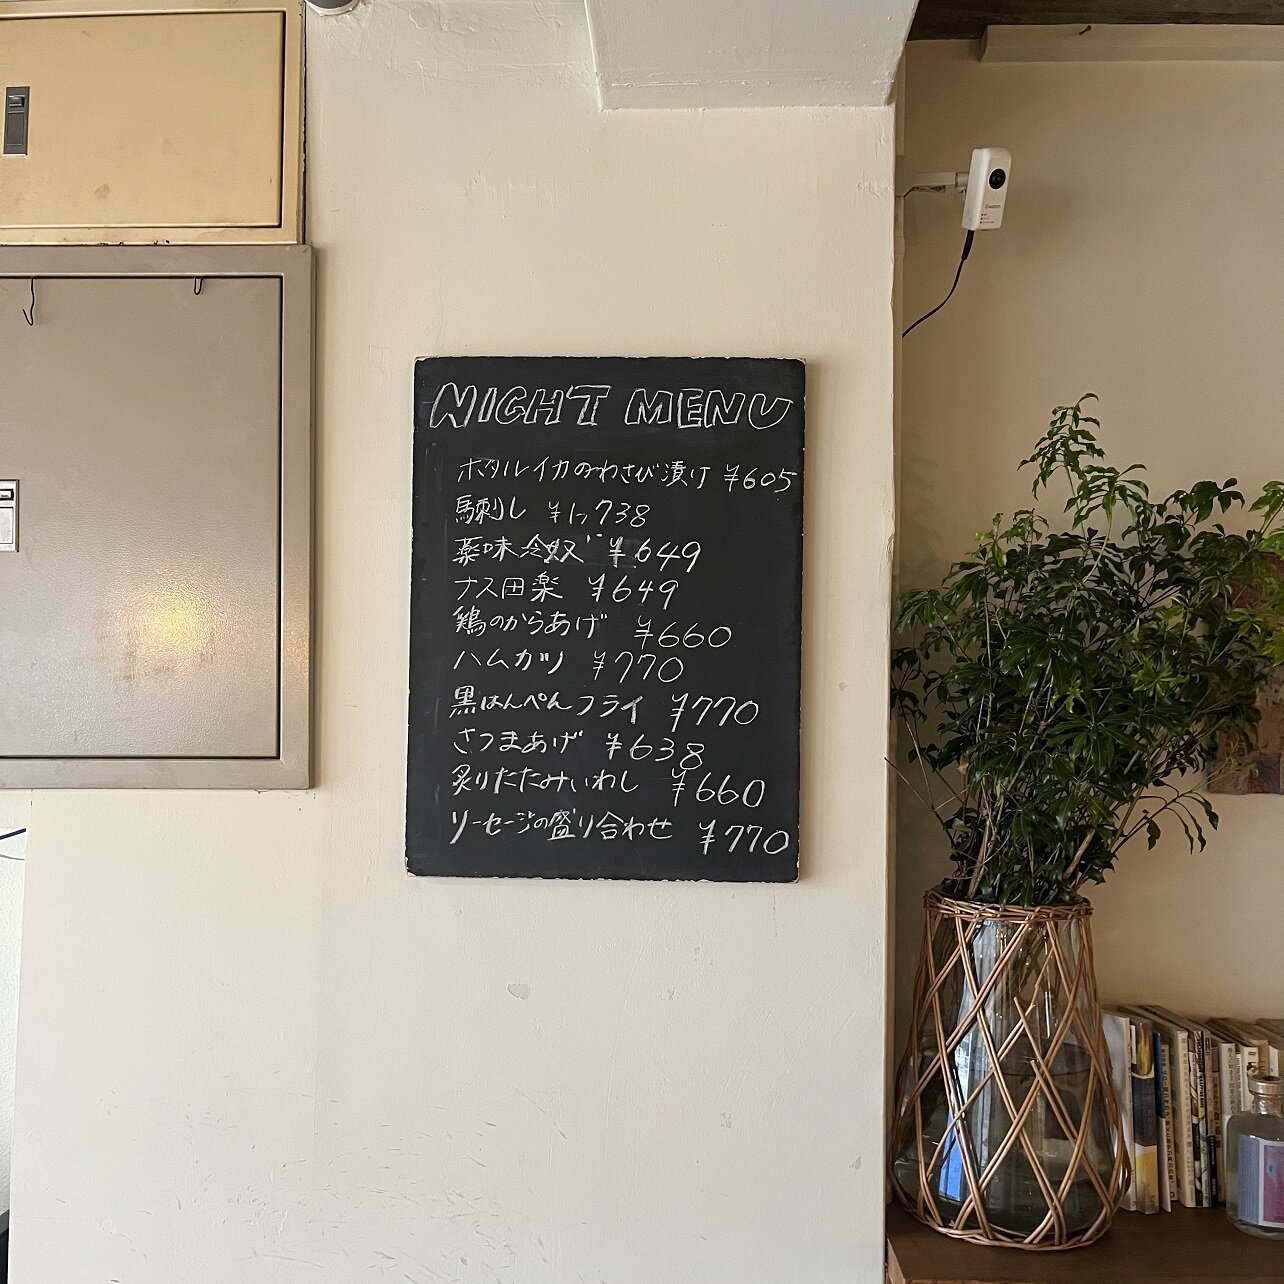 NIGHT MENU
ホタルイカのわさび漬け ¥605
馬刺し ¥1,738
薬味冷奴 ¥649
ナス田楽 ¥649
鶏のからあげ ¥660
ハムカツ ¥770
黒はんぺんフライ ¥770
さつまあげ ¥638
炙りたたみいわし ¥660
ソーセージの盛り合わせ ¥770